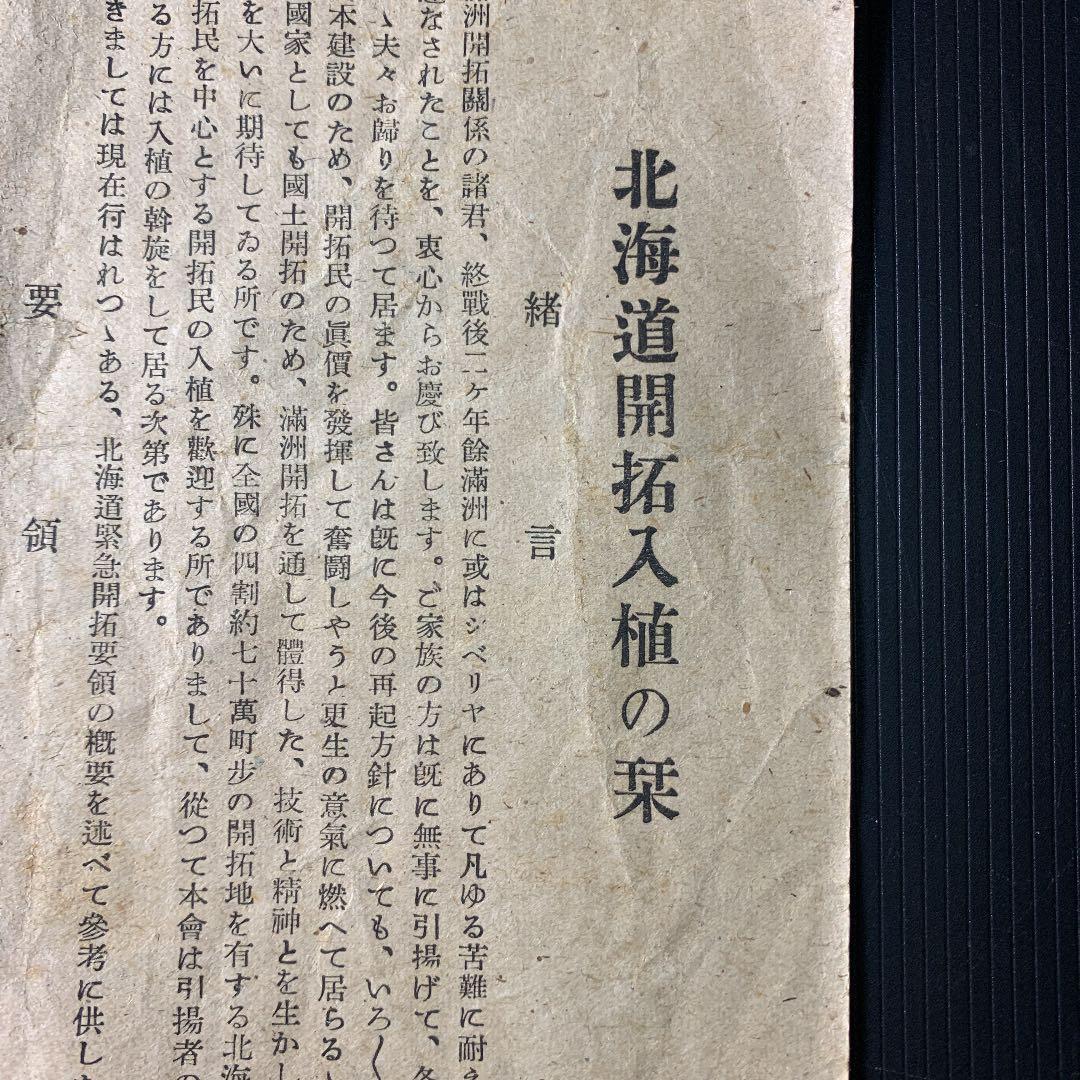 北海道開拓入植の栞
緒言
洲開拓關係の諸君、終戰後二ヶ年餘滿洲に或はシベリヤにありて凡ゆる苦難に耐え
なされたことを、衷心からお慶び致します。ご家族の方は既に無事に引揚げて、各
ゝ夫々お歸りを待つて居ます。皆さんは既に今後の再起方針についても、いろ〱
本建設のため、開拓民の眞價を發揮して奮闘しやうと更生の意氣に燃へて居らるゝ
國家としても國土開拓のため、滿洲開拓を通して體得した、技術と精神とを生かし
を大いに期待してゐる所です。殊に全國の四割約七十萬町步の開拓地を有する北海
拓民を中心とする開拓民の入植を歡迎する所でありまして、從つて本會は引揚者の
る方には入植の斡旋をして居る次第であります。
きましては現在行はれつゝある、北海道緊急開拓要領の槪要を述べて參考に供した
要領